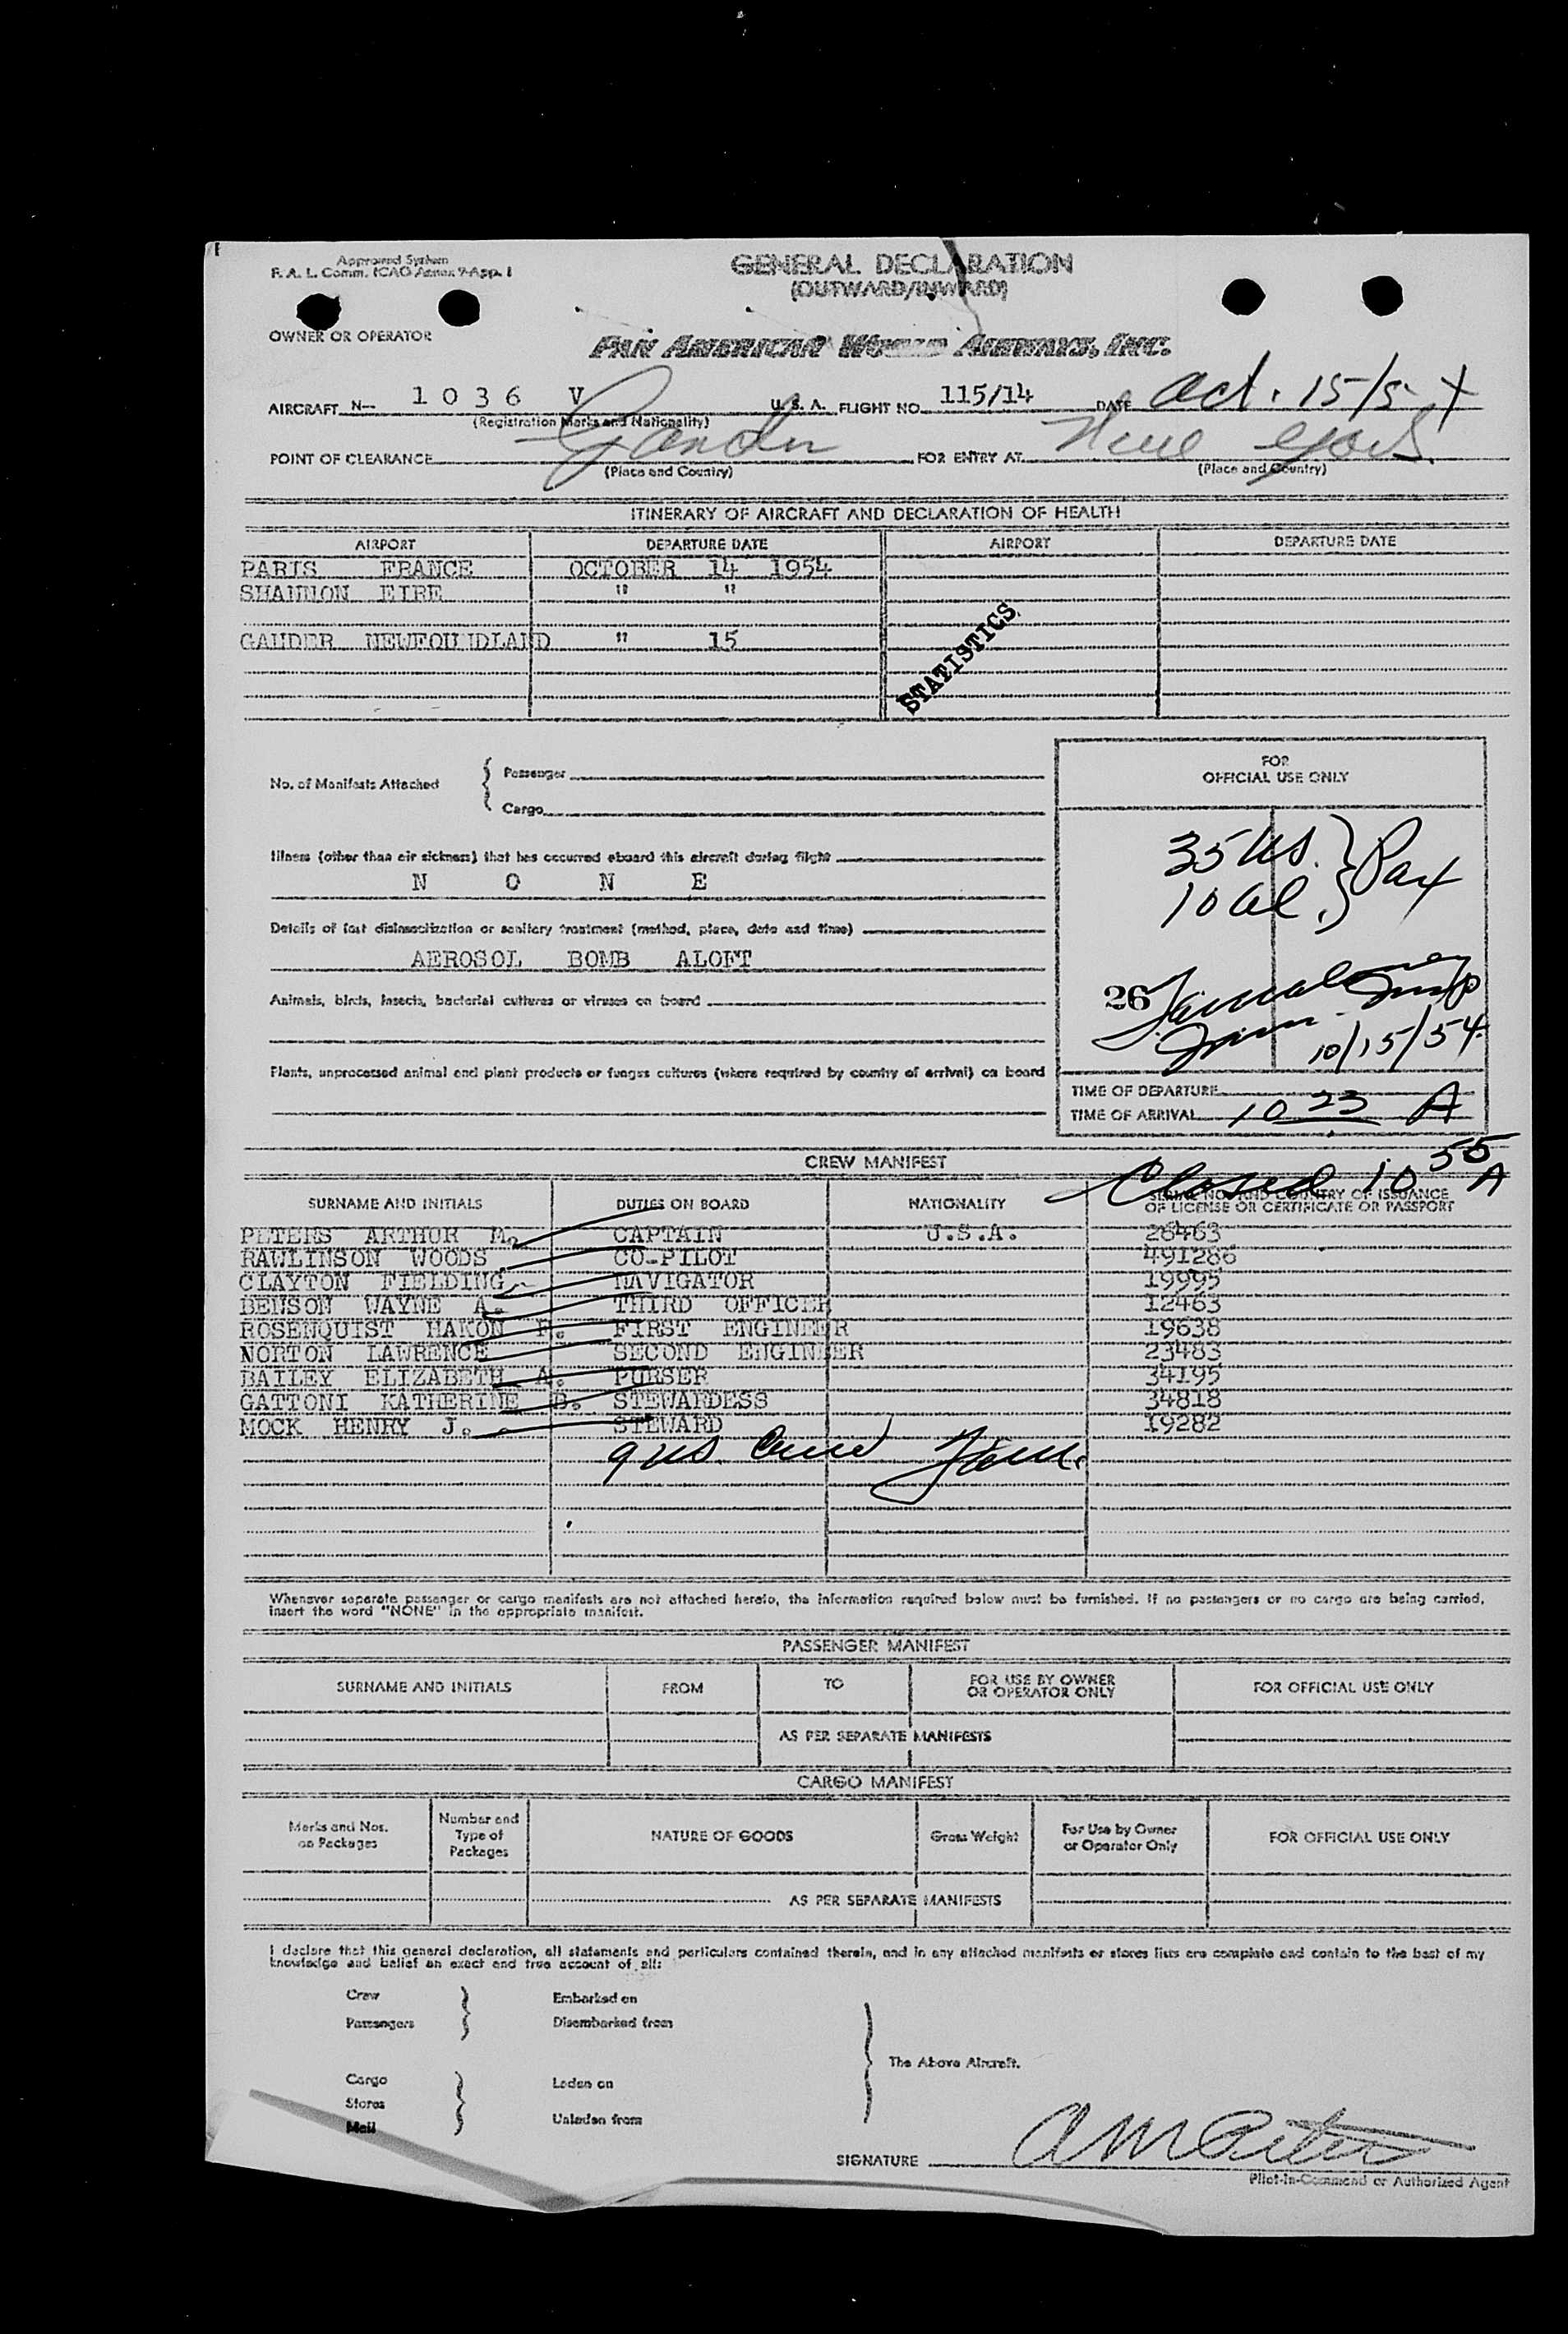 Approved System
F. A. L. Comm. ICAO Annex 9-App. 1
GENERAL DECLARATION
(OUTWARD/INWARD)
OWNER OR OPERATOR
PAN AMERICAN WORLD AIRWAYS, INC.
AIRCRAFT N— 1036 V U. S. A. FLIGHT NO. 115/14 DATE Oct. 15/54
(Registration Marks and Nationality)
POINT OF CLEARANCE Gander FOR ENTRY AT New York
(Place and Country) (Place and Country)
ITINERARY OF AIRCRAFT AND DECLARATION OF HEALTH
AIRPORT DEPARTURE DATE AIRPORT DEPARTURE DATE
PARIS FRANCE OCTOBER 14 1954
SHANNON EIRE " "
GANDER NEWFOUNDLAND " 15
STATISTICS
No. of Manifests Attached { Passenger
Cargo
FOR
OFFICIAL USE ONLY
35 US. } Pax
10 al.
Illness (other than air sickness) that has occurred aboard this aircraft during flight
N O N E
Details of last disinsectization or sanitary treatment (method, place, date and time)
AEROSOL BOMB ALOFT
Animals, birds, insects, bacterial cultures or viruses on board
26
Imm. Insp
10/15/54
Plants, unprocessed animal and plant products or fungus cultures (where required by country of arrival) on board
TIME OF DEPARTURE
TIME OF ARRIVAL 10 23 A
CREW MANIFEST
Closed 10 55 A
SURNAME AND INITIALS DUTIES ON BOARD NATIONALITY SERIAL NO. AND COUNTRY OF ISSUANCE
OF LICENSE OR CERTIFICATE OR PASSPORT
PETERS ARTHUR M. CAPTAIN U.S.A. 26463
RAWLINSON WOODS CO-PILOT 491286
CLAYTON FIELDING NAVIGATOR 19995
BENSON WAYNE A. THIRD OFFICER 12463
ROSENQUIST HAKON F. FIRST ENGINEER 19638
NORTON LAWRENCE SECOND ENGINEER 23483
BAILEY ELIZABETH A. PURSER 34195
GATTONI KATHERINE B. STEWARDESS 34818
MOCK HENRY J. STEWARD 19282
9 US. Crew
Whenever separate passenger or cargo manifests are not attached hereto, the information required below must be furnished. If no passengers or no cargo are being carried,
insert the word "NONE" in the appropriate manifest.
PASSENGER MANIFEST
SURNAME AND INITIALS FROM TO FOR USE BY OWNER
OR OPERATOR ONLY FOR OFFICIAL USE ONLY
AS PER SEPARATE MANIFESTS
CARGO MANIFEST
Marks and Nos.
on Packages Number and
Type of
Packages NATURE OF GOODS Gross Weight For Use by Owner
or Operator Only FOR OFFICIAL USE ONLY
AS PER SEPARATE MANIFESTS
I declare that this general declaration, all statements and particulars contained therein, and in any attached manifests or stores lists are complete and contain to the best of my
knowledge and belief an exact and true account of all:
Crew } Embarked on
Passengers Disembarked from
The Above Aircraft.
Cargo Laden on
Stores
Mail Unladen from
SIGNATURE A M Peters
Pilot-in-Command or Authorized Agent